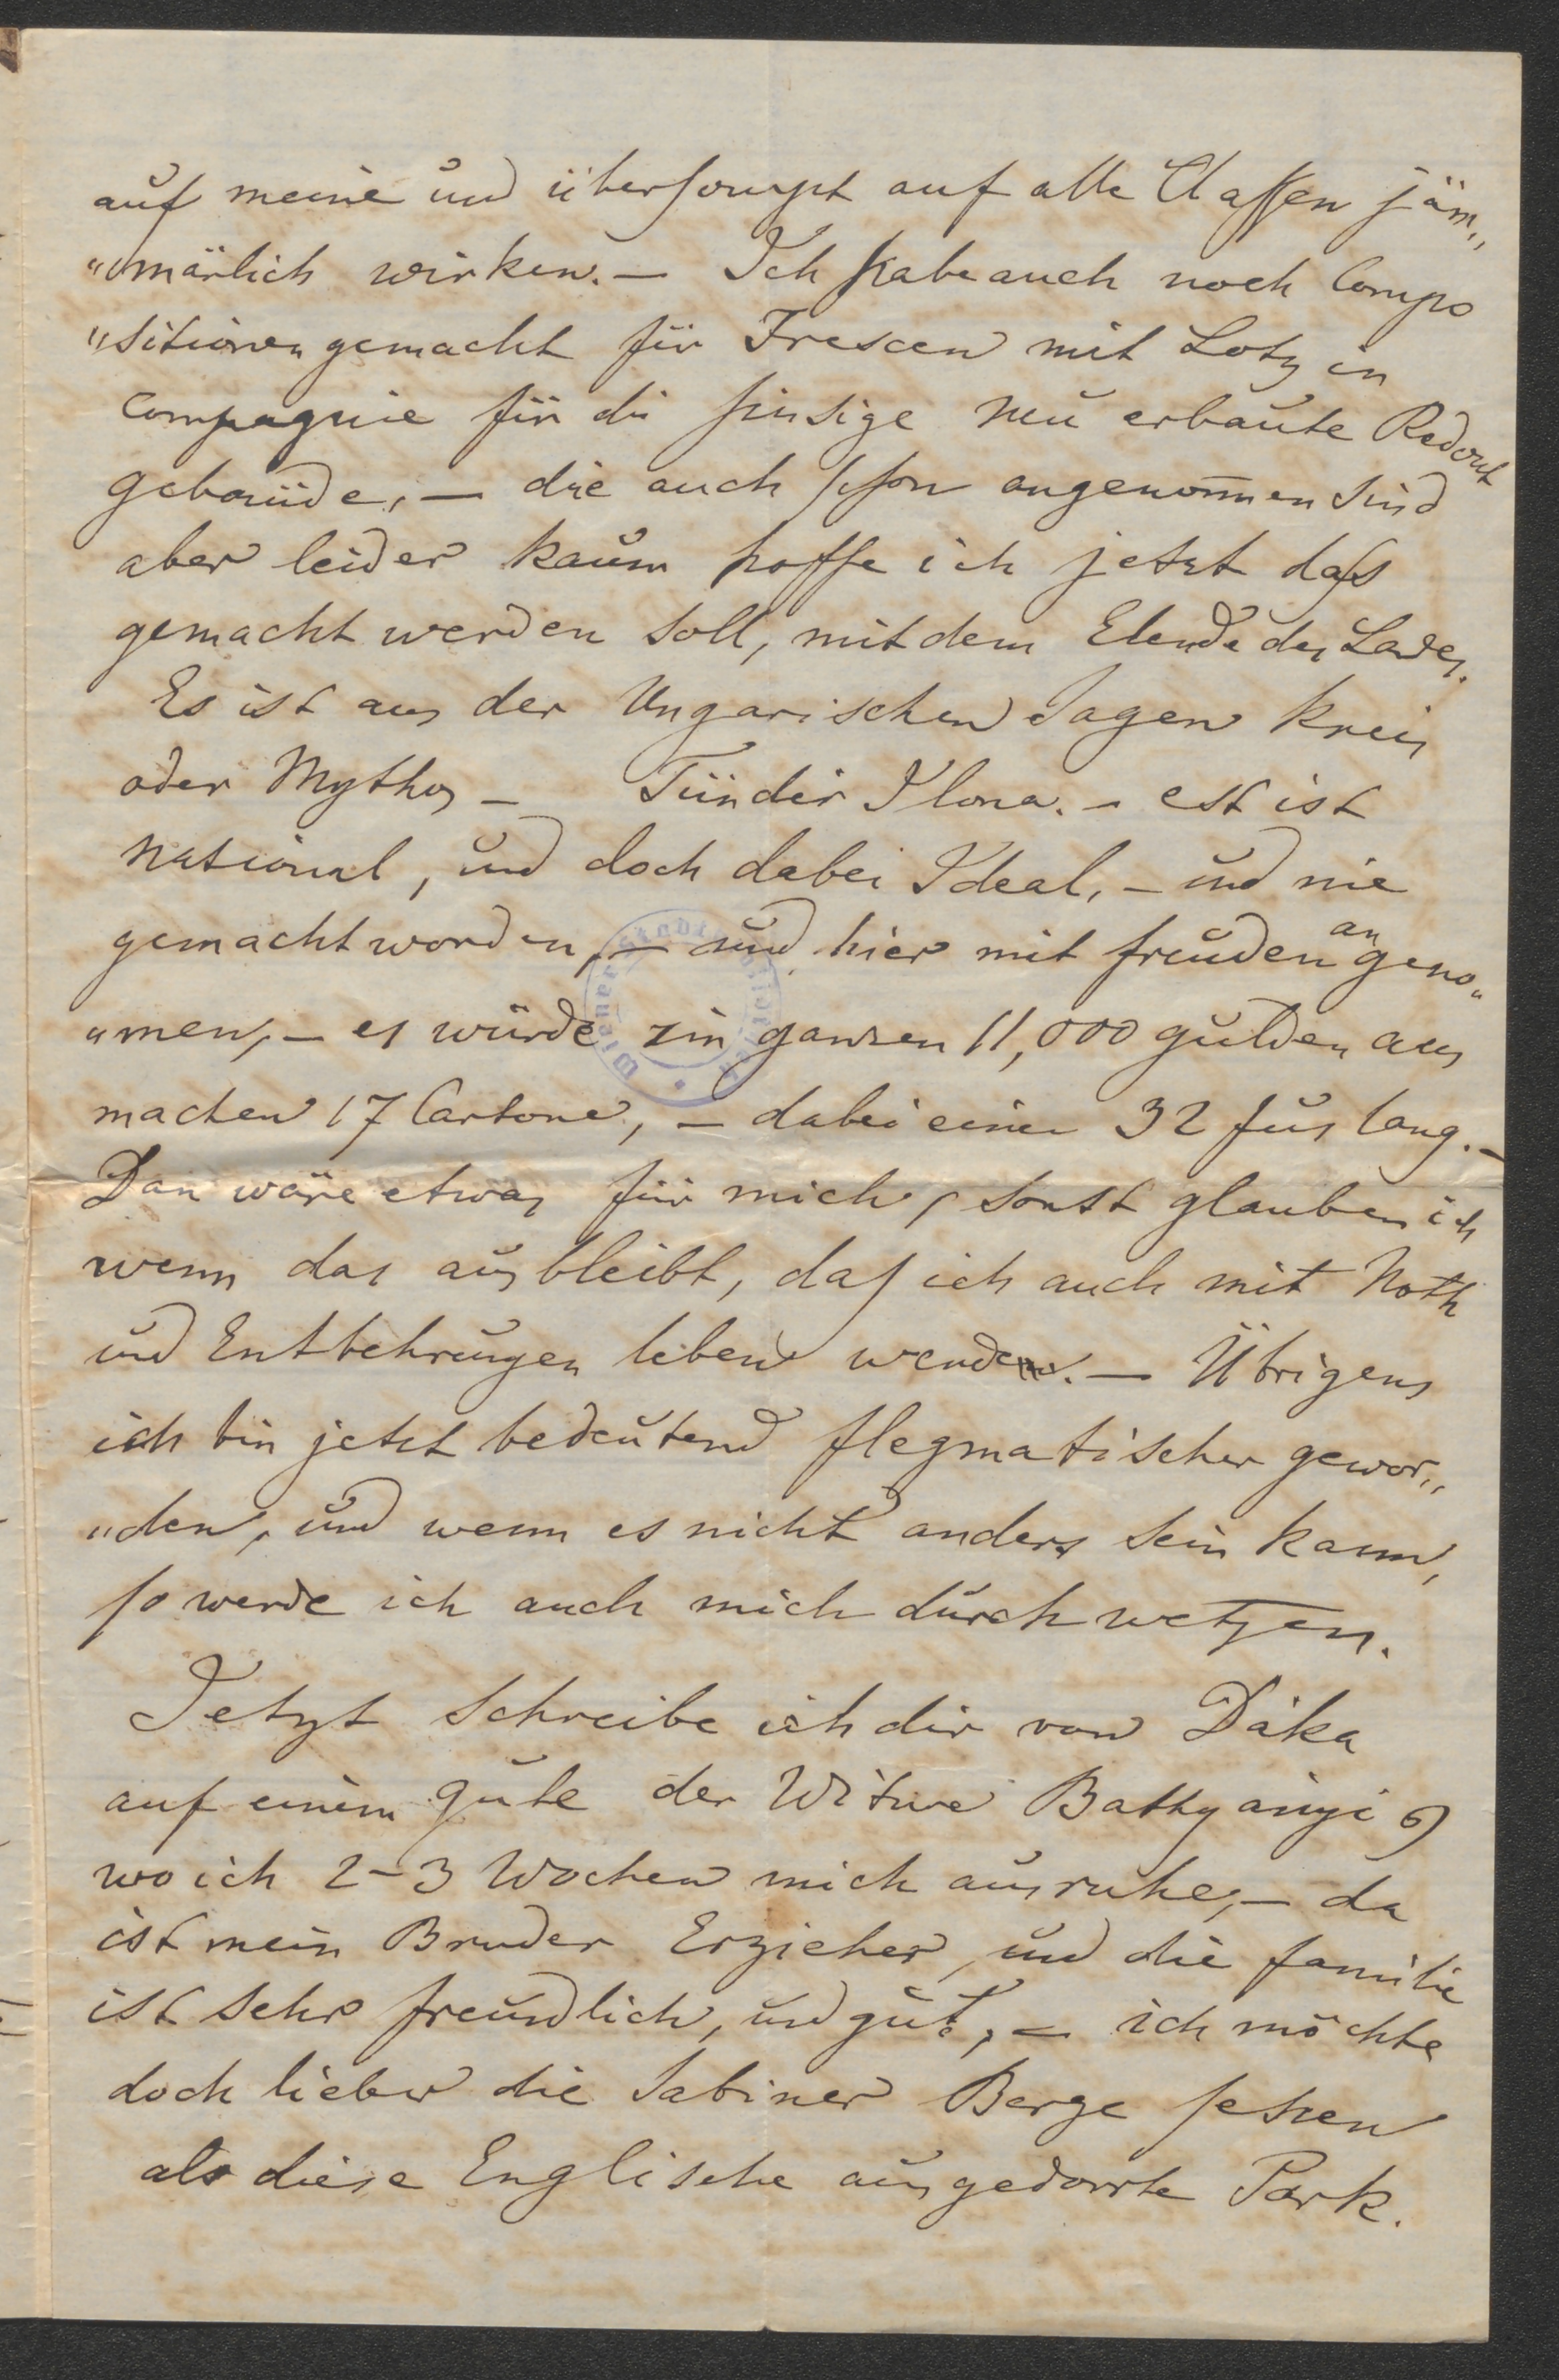 auf meine und überhaupt auf alle Classen jäm„
„märlich wirken. – Ich habe auch noch Compo
„sitionen gemacht für Frescen mit Lotz in
Compagnie für die hiesige neu erbaute Redout
gebaüde, – die auch schon angenom̅en sind
aber leider kaum hoffe ich jetzt daß
gemacht werden soll, mit dem Elende des Landes.
Es ist aus der Ungarischen Sagen kreis
oder Mythos – Tündér Ilona. – est ist
national, und doch dabei Ideal, – und nie
gemacht worden, – und hier mit freuden angeno„
„men, – es würde im ganzen 11,000 gulden aus
machen 17 Cartone, – dabei einer 32 fus lang. –
Dan wäre etwas für mich, sonst glauben ich
wenn das ausbleibt, das ich auch mit Noth
und Entbehrungen leben werde. – Übrigens
ich bin jetzt bedeutend flegmatischer gewor„
„den, und wenn es nicht anders sein kann,
so werde ich auch mich durch wetzen.
Jetzt schreibe ich dir von Dáka
auf einem gute der Witwe Batthyányi
wo ich 2–3 Wochen mich ausruhe, – da
ist mein Bruder Erzieher, und die familie
ist sehr freundlich, und gut, – ich möchte
doch lieber die Sabiner Berge sehen
als diese Englische ausgedorrte Park.
Wiener Stadtbibliothek